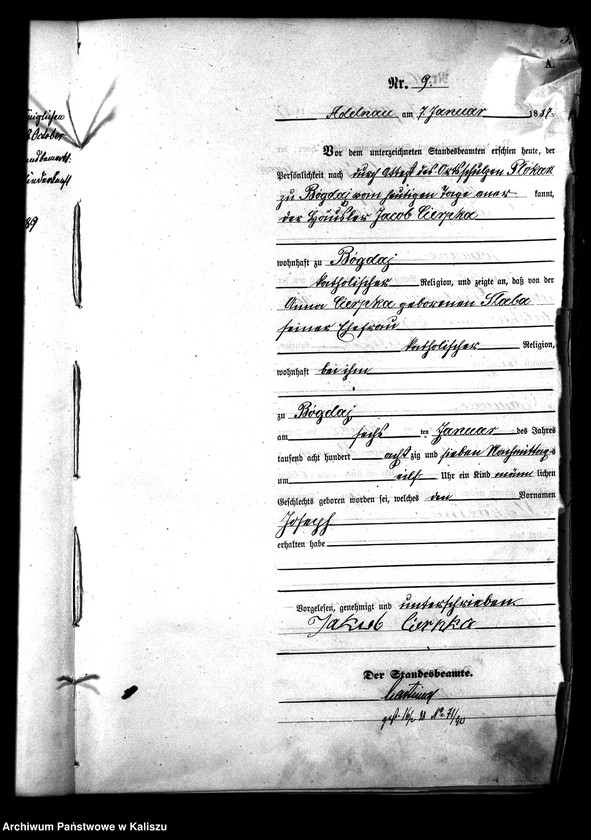 A.
Nr. 9.
Adelnau am 7 Januar 1887.
Vor dem unterzeichneten Standesbeamten erschien heute, der
Persönlichkeit nach durch Attest des Ortsschulzen
zu Bógdaj vom heutigen Tage aner kannt,
der Häusler Jacob Cierpka
wohnhaft zu Bógdaj
katholischer Religion, und zeigte an, daß von der
Anna Cierpka geborenen Slaba
seiner Ehefrau
katholischer Religion,
wohnhaft bei ihm
zu Bógdaj
am sechs ten Januar des Jahres
tausend acht hundert acht zig und sieben Nachmittags
um eilf Uhr ein Kind männ lichen
Geschlechts geboren worden sei, welches den Vornamen
Joseph
erhalten habe
Vorgelesen, genehmigt und unterschrieben
Jakub Cierpka
Der Standesbeamte.
Archiwum Państwowe w Kaliszu